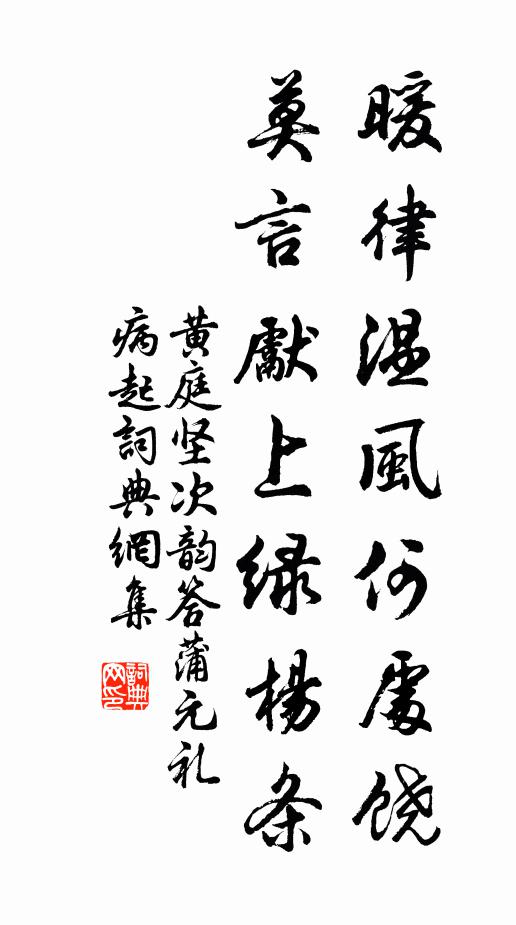 暖律温風何處饶
莫言獻上绿楊条
黄庭坚次韵答蒲元礼
病起詞典網集
詞典网印